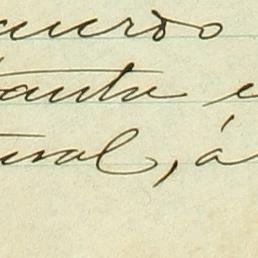 uerdo
tante e
tural, á